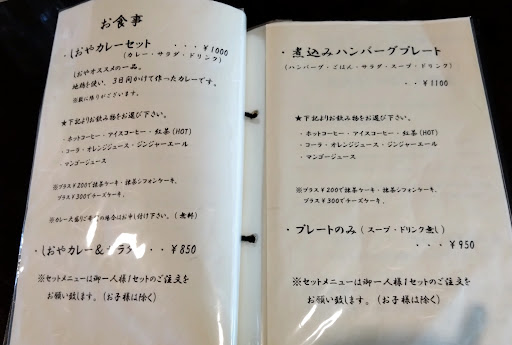 お食事
・しおやカレーセット ・・・￥1000
(カレー・サラダ・ドリンク)
しおやオススメの一品。
地鶏を使い、3日間かけて作ったカレーです。
※数に限りがございます。
★下記よりお飲み物をお選び下さい。
・ホットコーヒー・アイスコーヒー・紅茶(HOT)
・コーラ・オレンジジュース・ジンジャーエール
・マンゴージュース
※プラス￥200で抹茶ケーキ・抹茶シフォンケーキ、
プラス￥300でチーズケーキ。
※カレー大盛りご希望の場合はお申し付け下さい。(無料)
・しおやカレー&サラダ・・・￥850
※セットメニューは御一人様1セットのご注文を
お願い致します。(お子様は除く)
・煮込みハンバーグプレート
(ハンバーグ・ごはん・サラダ・スープ・ドリンク)
・・￥1100
★下記よりお飲み物をお選び下さい。
・ホットコーヒー・アイスコーヒー・紅茶(HOT)
・コーラ・オレンジジュース・ジンジャーエール
・マンゴージュース
※プラス￥200で抹茶ケーキ・抹茶シフォンケーキ、
プラス￥300でチーズケーキ。
・プレートのみ(スープ・ドリンク無し)
・・・￥950
※セットメニューは御一人様1セットのご注文を
お願い致します。(お子様は除く)